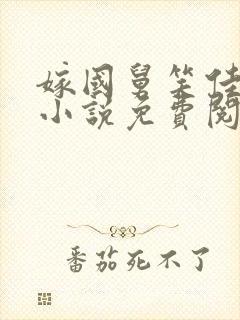 嫁國舅笑佳
小說免費閱
番茄死不了